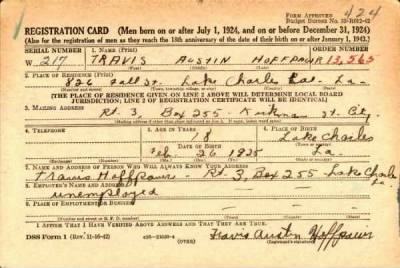 424
Form Approved
Budget Bureau No. 33-R012-42
REGISTRATION CARD (Men born on or after July 1, 1924, and on or before December 31, 1924)
(Also for the registration of men as they reach the 18th anniversary of the date of their birth on or after January 1, 1943.)
SERIAL NUMBER 1. NAME (Print) ORDER NUMBER
W 217 TRAVIS AUSTIN HOFFPAUIR 13,565
(First) (Middle) (Last)
2. PLACE OF RESIDENCE (Print)
826 St. Lake Charles La.
[THE PLACE OF RESIDENCE GIVEN ON LINE 2 ABOVE WILL DETERMINE LOCAL BOARD
JURISDICTION; LINE 2 OF REGISTRATION CERTIFICATE WILL BE IDENTICAL]
3. MAILING ADDRESS
Rt. 3, Box 255 Kirkman St. City
4. TELEPHONE 5. AGE IN YEARS 6. PLACE OF BIRTH
18 Lake Charles
DATE OF BIRTH
Feb. 26 1925 La.
7. NAME AND ADDRESS OF PERSON WHO WILL ALWAYS KNOW YOUR ADDRESS
Travis Hoffpauir - Rt. 3, Box 255 - Lake Charles La.
8. EMPLOYER'S NAME AND ADDRESS
unemployed
9. PLACE OF EMPLOYMENT OR BUSINESS
I AFFIRM THAT I HAVE VERIFIED ABOVE ANSWERS AND THAT THEY ARE TRUE.
DSS Form 1 (Rev. 11-16-42) (OVER) Travis Austin Hoffpauir
(Registrant's signature)